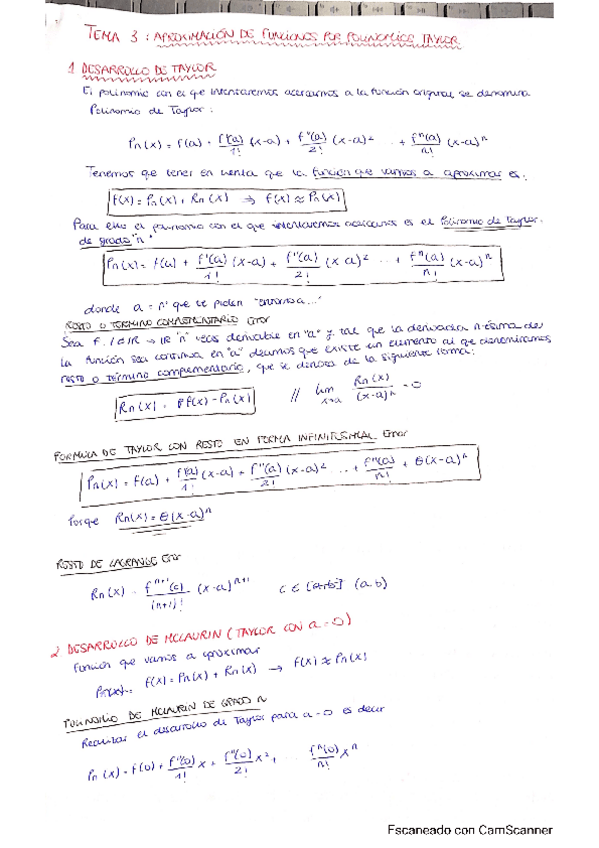 TEMA 3: APROXIMACIÓN DE FUNCIONES POR POLINOMIOS TAYLOR
1 DESARROLLO DE TAYLOR
El polinomio con el que intentaremos acercarnos a la función original se denomina
Polinomio de Taylor:
Pn(x) = f(a) + f'(a)/1! (x-a) + f''(a)/2! (x-a)² ... + fⁿ(a)/n! (x-a)ⁿ
Tenemos que tener en cuenta que la función que vamos a aproximar es:
f(x) = Pn(x) + Rn(x) → f(x) ≈ Pn(x)
Para ello el polinomio con el que intentaremos acercarnos es el Polinomio de Taylor
de grado "n"
Pn(x) = f(a) + f'(a)/1! (x-a) + f''(a)/2! (x-a)² ... + fⁿ(a)/n! (x-a)ⁿ
donde a = nº que te piden "entorno a..."
RESTO O TERMINO COMPLEMENTARIO Error
Sea f: I ∈ IR → IR "n" veces derivable en "a" y tal que la derivada n-ésima de
la función sea continua en "a" decimos que existe un elemento al que denominamos
resto o término complementario, que se denota de la siguiente forma:
Rn(x) = f(x) - Pn(x) // lim x→a Rn(x)/(x-a)ⁿ = 0
FORMULA DE TAYLOR CON RESTO EN FORMA INFINITESIMAL Error
Pn(x) = f(a) + f'(a)/1! (x-a) + f''(a)/2! (x-a)² ... + fⁿ(a)/n! + θ(x-a)ⁿ
Porque Rn(x) = θ(x-a)ⁿ
RESTO DE LAGRANGE Error
Rn(x) = fⁿ⁺¹(c)/(n+1)! (x-a)ⁿ⁺¹ c ∈ (a,b)
2 DESARROLLO DE MCLAURIN (TAYLOR CON a=0)
Función que vamos a aproximar
f(x) = Pn(x) + Rn(x) → f(x) ≈ Pn(x)
POLINOMIO DE MCLAURIN DE GRADO n
Realizar el desarrollo de Taylor para a=0 es decir
Pn(x) = f(0) + f'(0)/1! x + f''(0)/2! x² + ... fⁿ(0)/n! xⁿ
Escaneado con CamScanner